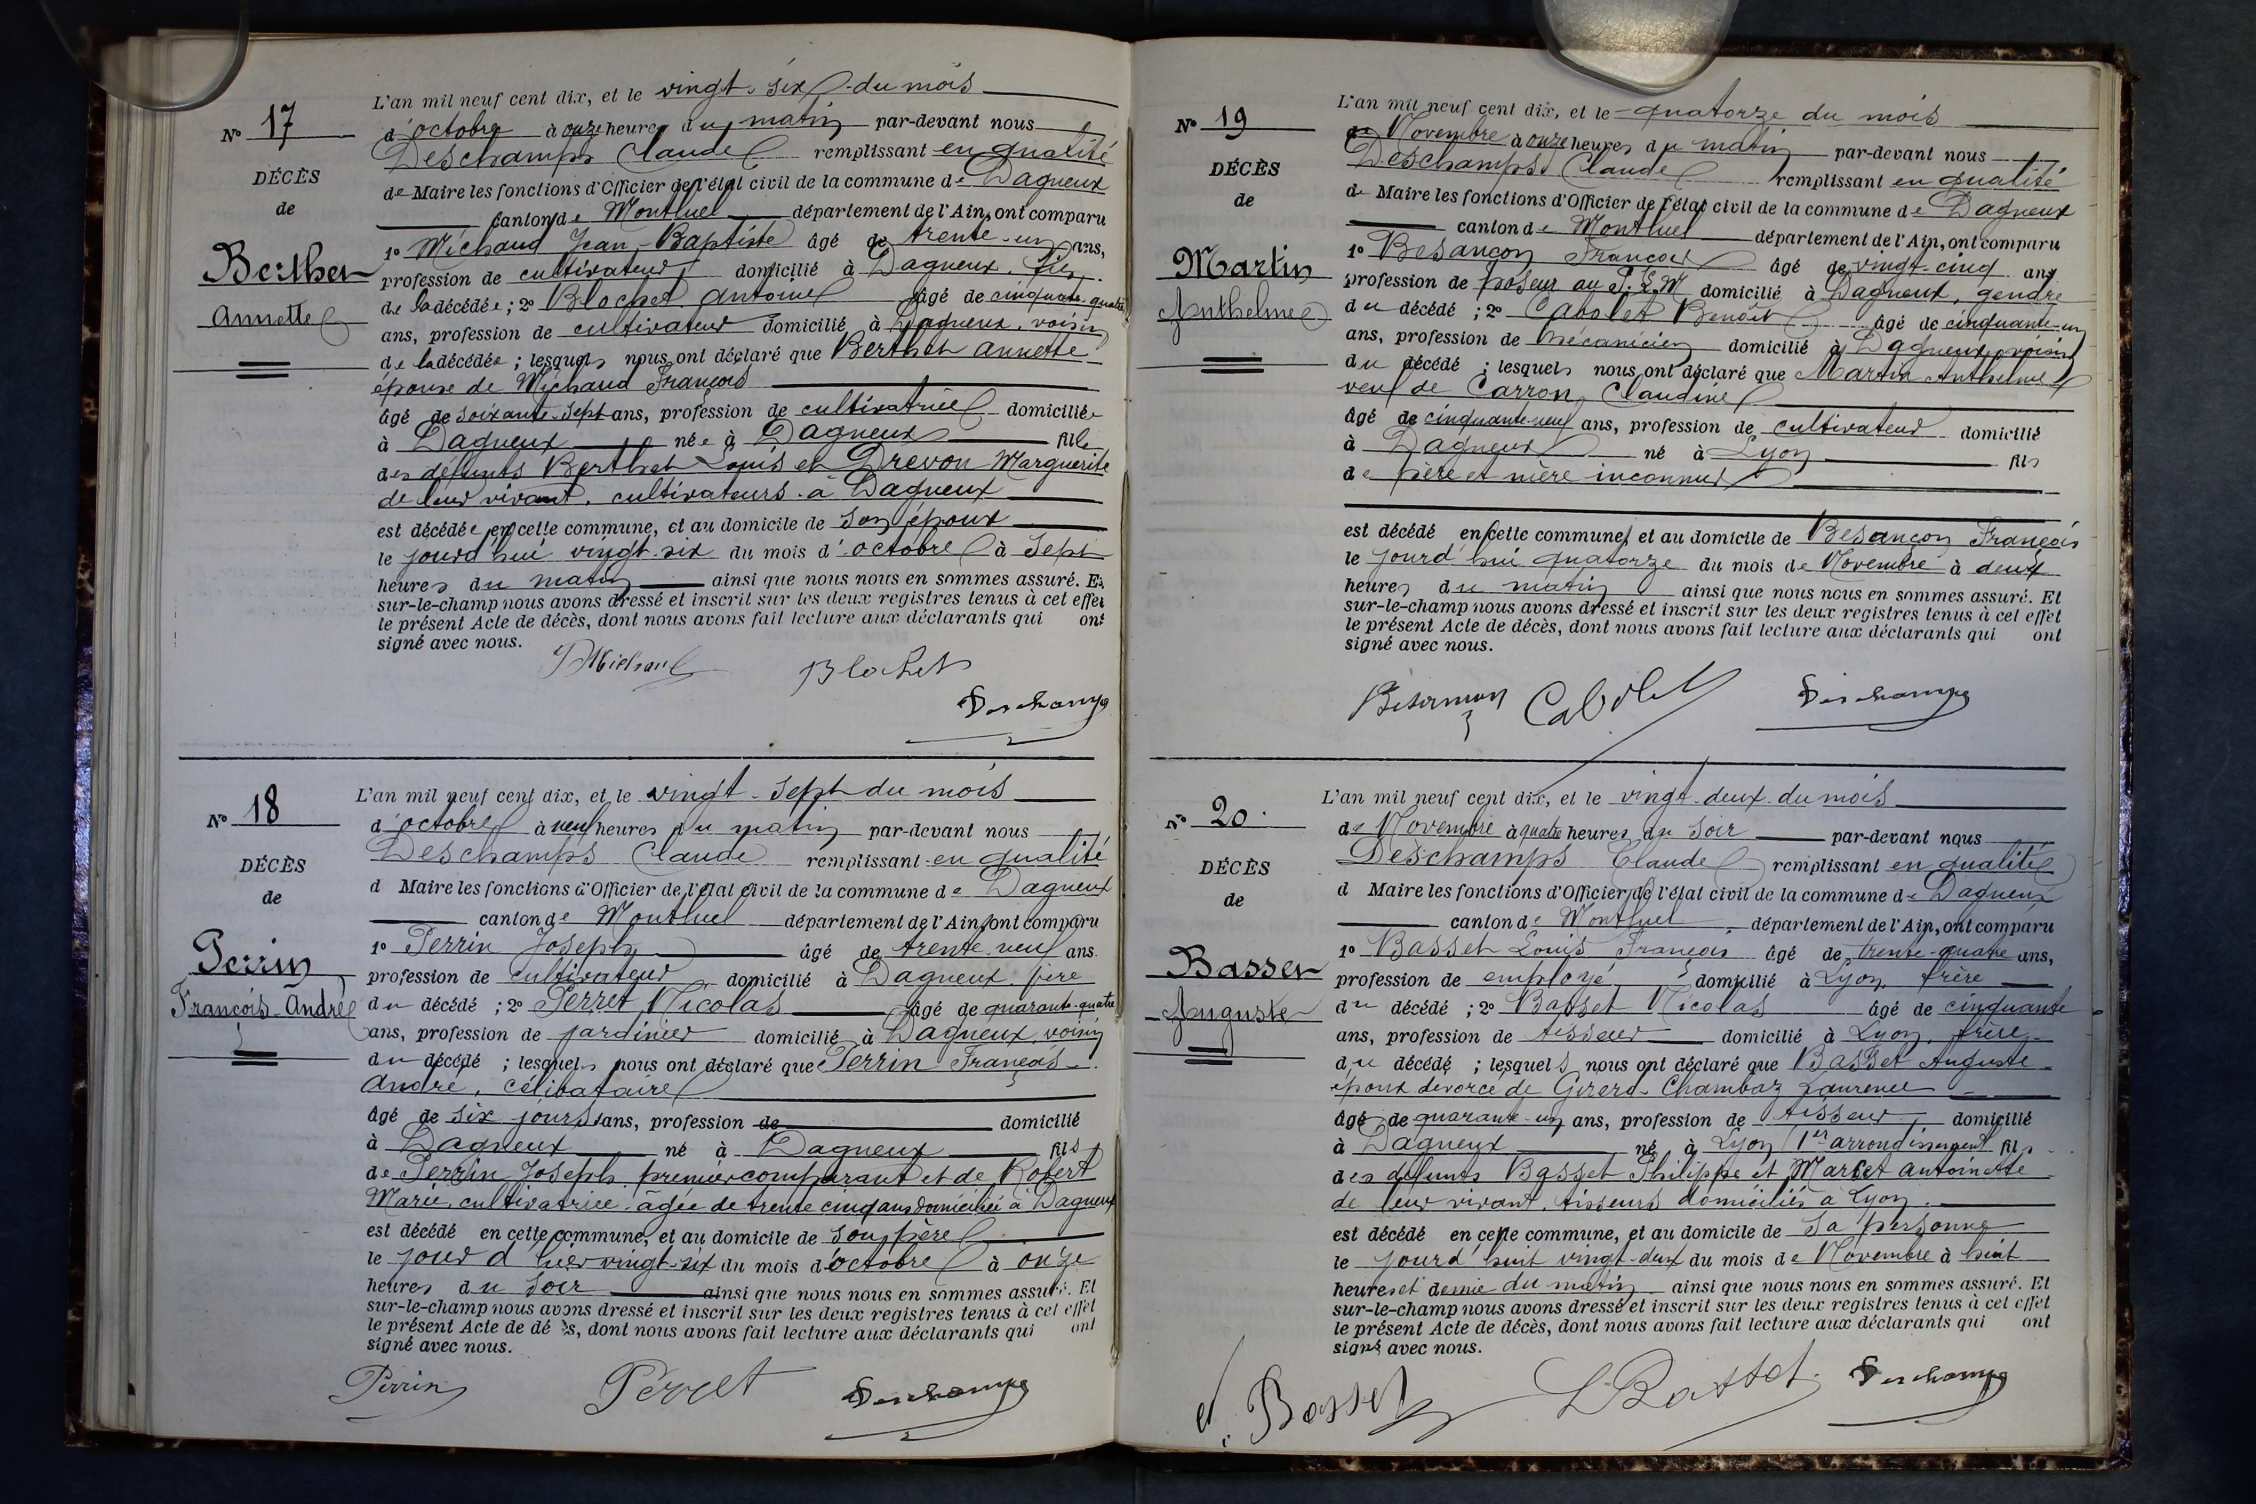 N° 17
DÉCÈS
de
Berthet
Annette
L'an mil neuf cent dix, et le vingt-six du mois
d'octobre à onze heures du matin par-devant nous
Deschamps Claude remplissant en qualité
de Maire les fonctions d'Officier de l'état civil de la commune de Dagneux
canton de Montluel département de l'Ain, ont comparu
1° Michaud Jean-Baptiste âgé de trente-un ans,
profession de cultivateur domicilié à Dagneux, fils
de la décédée ; 2° Blachet Antoine âgé de cinquante-quatre
ans, profession de cultivateur domicilié à Dagneux, voisin
de la décédée ; lesquels nous ont déclaré que Berthet Annette
épouse de Michaud François
âgé de soixante-sept ans, profession de cultivatrice domiciliée
à Dagneux née à Dagneux fille
des défunts Berthet Louis et Drevon Marguerite
de leur vivant, cultivateurs à Dagneux
est décédée en cette commune, et au domicile de son époux
le jourd'hui vingt-six du mois d'octobre à sept
heures du matin ainsi que nous nous en sommes assuré. Et
sur-le-champ nous avons dressé et inscrit sur les deux registres tenus à cet effet
le présent Acte de décès, dont nous avons fait lecture aux déclarants qui ont
signé avec nous.
Michaud Blachet
Deschamps
N° 18
DÉCÈS
de
Perrin
François-André
L'an mil neuf cent dix, et le vingt-sept du mois
d'octobre à neuf heures du matin par-devant nous
Deschamps Claude remplissant en qualité
d Maire les fonctions d'Officier de l'état civil de la commune de Dagneux
canton de Montluel département de l'Ain, ont comparu
1° Perrin Joseph âgé de trente-neuf ans.
profession de cultivateur domicilié à Dagneux, père
du décédé ; 2° Perret Nicolas âgé de quarante-quatre
ans, profession de jardinier domicilié à Dagneux, voisin
du décédé ; lesquels nous ont déclaré que Perrin François-
André, célibataire
âgé de six jours ans, profession de domicilié
à Dagneux né à Dagneux fils
de Perrin Joseph, premier comparant et de Robert
Marie, cultivatrice, âgée de trente cinq ans domiciliée à Dagneux
est décédé en cette commune, et au domicile de son père
le jour d'hier vingt-six du mois d'octobre à onze
heures du soir ainsi que nous nous en sommes assuré. Et
sur-le-champ nous avons dressé et inscrit sur les deux registres tenus à cet effet
le présent Acte de dé s, dont nous avons fait lecture aux déclarants qui ont
signé avec nous.
Perrin Perret Deschamps
N° 19
DÉCÈS
de
Martin
Anthelme
L'an mil neuf cent dix, et le quatorze du mois
de Novembre à onze heures du matin par-devant nous
Deschamps Claude remplissant en qualité
de Maire les fonctions d'Officier de l'état civil de la commune de Dagneux
canton de Montluel département de l'Ain, ont comparu
1° Besançon François âgé de vingt-cinq ans
profession de poseur au P. L. M domicilié à Dagneux, gendre
du décédé ; 2° Cabolet Benoît âgé de cinquante-un
ans, profession de mécanicien domicilié à Dagneux, voisin
du décédé ; lesquels nous ont déclaré que Martin Anthelme
veuf de Carron Claudine
âgé de cinquante-neuf ans, profession de cultivateur domicilié
à Dagneux né à Lyon fils
de père et mère inconnus
est décédé en cette commune, et au domicile de Besançon François
le jourd'hui quatorze du mois de Novembre à deux
heures du matin ainsi que nous nous en sommes assuré. Et
sur-le-champ nous avons dressé et inscrit sur les deux registres tenus à cet effet
le présent Acte de décès, dont nous avons fait lecture aux déclarants qui ont
signé avec nous.
Besançon Cabolet Deschamps
N° 20.
DÉCÈS
de
Basset
Auguste
L'an mil neuf cent dix, et le vingt-deux du mois
de Novembre à quatre heures du soir par-devant nous
Deschamps Claude remplissant en qualité
d Maire les fonctions d'Officier de l'état civil de la commune de Dagneux
canton de Montluel département de l'Ain, ont comparu
1° Basset Louis François âgé de trente-quatre ans,
profession de employé domicilié à Lyon, frère
du décédé ; 2° Basset Nicolas âgé de cinquante
ans, profession de tisseur domicilié à Lyon, frère
du décédé ; lesquels nous ont déclaré que Basset Auguste
époux divorcé de Girerd-Chambaz Laurence
âgé de quarante-un ans, profession de tisseur domicilié
à Dagneux né à Lyon (1er arrondissement fils
des défunts Basset Philippe et Marcet Antoinette
de leur vivant, tisseurs domiciliés à Lyon.
est décédé en cette commune, et au domicile de sa personne
le jourd'huit vingt-deux du mois de Novembre à huit
heures et demie du matin ainsi que nous nous en sommes assuré. Et
sur-le-champ nous avons dressé et inscrit sur les deux registres tenus à cet effet
le présent Acte de décès, dont nous avons fait lecture aux déclarants qui ont
signé avec nous.
Basset L Basset Deschamps